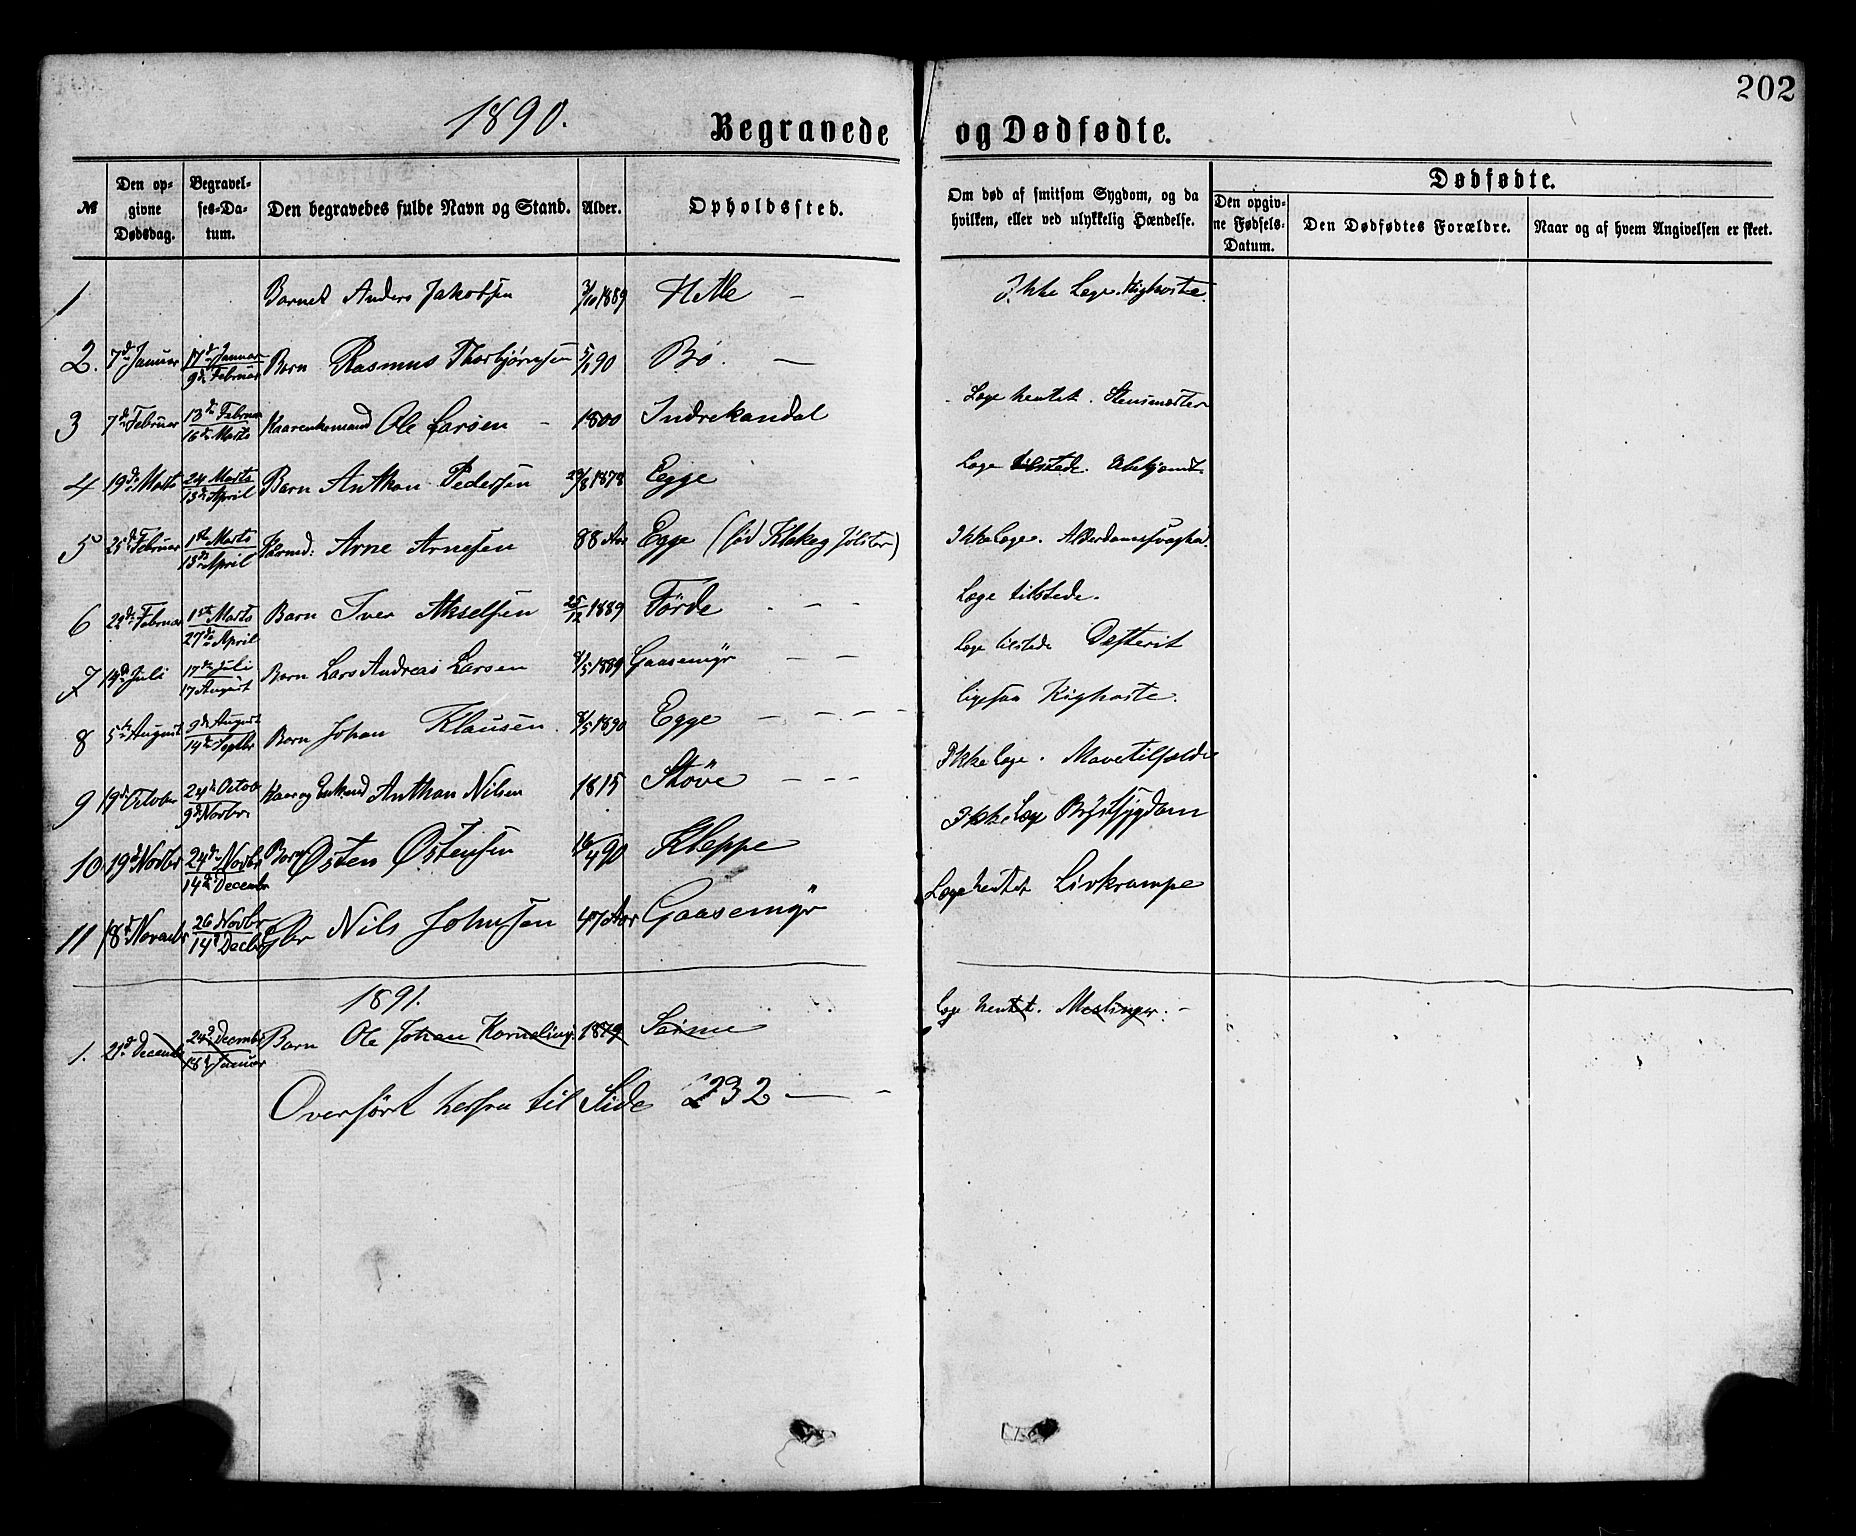 202
1890.
Begravede og Dødfødte.
№ | Den opgivne Dødsdag. | Begravelses-Datum. | Den begravedes fulde Navn og Stand. | Alder. | Opholdssted. | Om død af smitsom Sygdom, og da hvilken, eller ved ulykkelig Hændelse. | Dødfødte. Den opgivne Fødsels-Datum. | Den Dødfødtes Forældre. | Naar og af hvem Angivelsen er skeet.
1 Barnet Anders Jakobsen 3/10 1889 Hetle — Ikke Læge. Kighoste
2. 7de Januar 17de Januar 9de Februar Barn Rasmus Thorbjørnsen 5/1 90 Bø. —
3 7de Februar 13de Februar 16de Marts Kaarenkemand Ole Larsen – 1800 Indrekandal Læge hentet.
4 19de Marts 24 Marts 13de April Barn Anthon Pedersen 1878 Egge Læge tilstede.
5 25de Februar 1ste Marts 13de April Kaarmd: Arne Arnesen 88 Aar Egge (fød Klakeg Jølster) Ikke Læge. Alderdomssvaghed.
6 22de Februar 1ste Marts 27de April Barn Iver Akselsen 25/12 1889 Förde - — — Læge tilstede.
7 14de Juli 17de Juli 17 August Barn Lars Andreas Larsen 8/5 1889 Gaasemyr — — Læge tilstede Difterit
8 5te August 9de August 14de Septbr Barn Johan Klausen. 8/5 1890 Egge — — — — ligesaa Kighoste.
9 19de October 24de Octob 9de Novbr. Kaar og Enkemd Anthon Nilsen 1815 Støve — — — Ikke Læge. Mavetilfælde
10 19de Novbr 24de Novbr 14de Decembr Barn Østen Østensen 90 Kleppe Ikke Læge Brystsygdom
11 18de Novembr 26 Novbr 14de Decbr Gbr Nils Johnsen 47 Aar Gaasemyr Læge hentet Livkrampe
1891.
1. 21de Decembr 24de Decembr 18de Januar Barn Ole Johan Kornelius. 1879 Læge hentet. Meslinger. –
Overført herfra til Side 232 — –